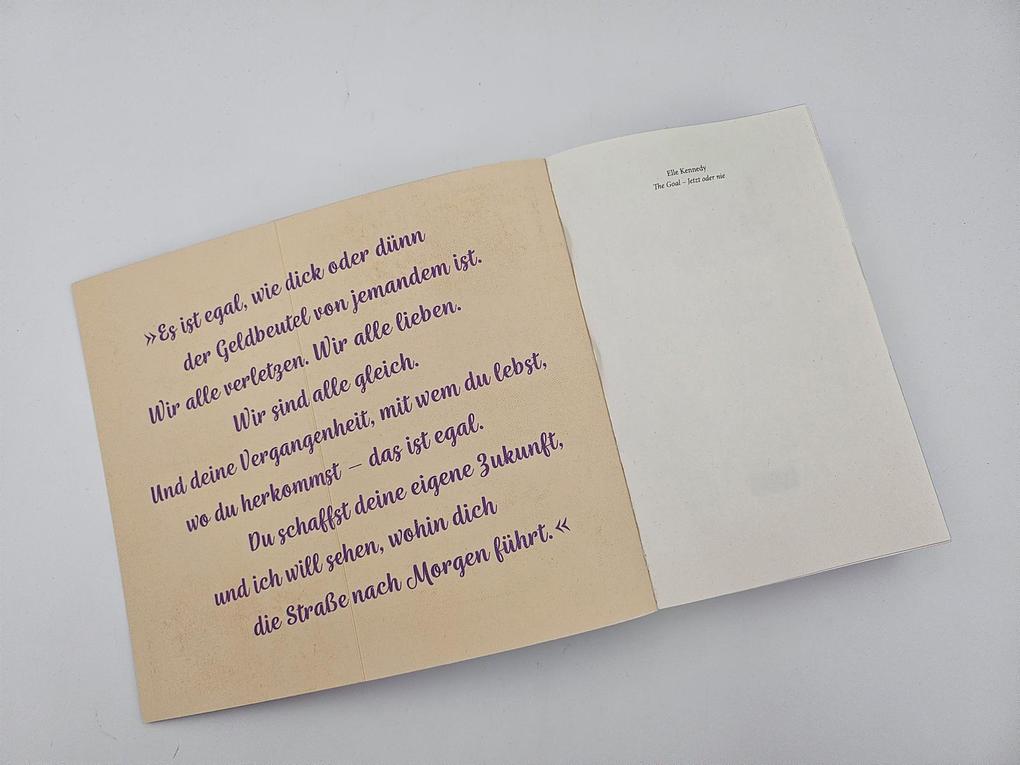 »Es ist egal, wie dick oder dünn
der Geldbeutel von jemandem ist.
Wir alle verletzen. Wir alle lieben.
Wir sind alle gleich.
Und deine Vergangenheit, mit wem du lebst,
wo du herkommst – das ist egal.
Du schaffst deine eigene Zukunft,
und ich will sehen, wohin dich
die Straße nach Morgen führt.«
Elle Kennedy
The Goal – Jetzt oder nie